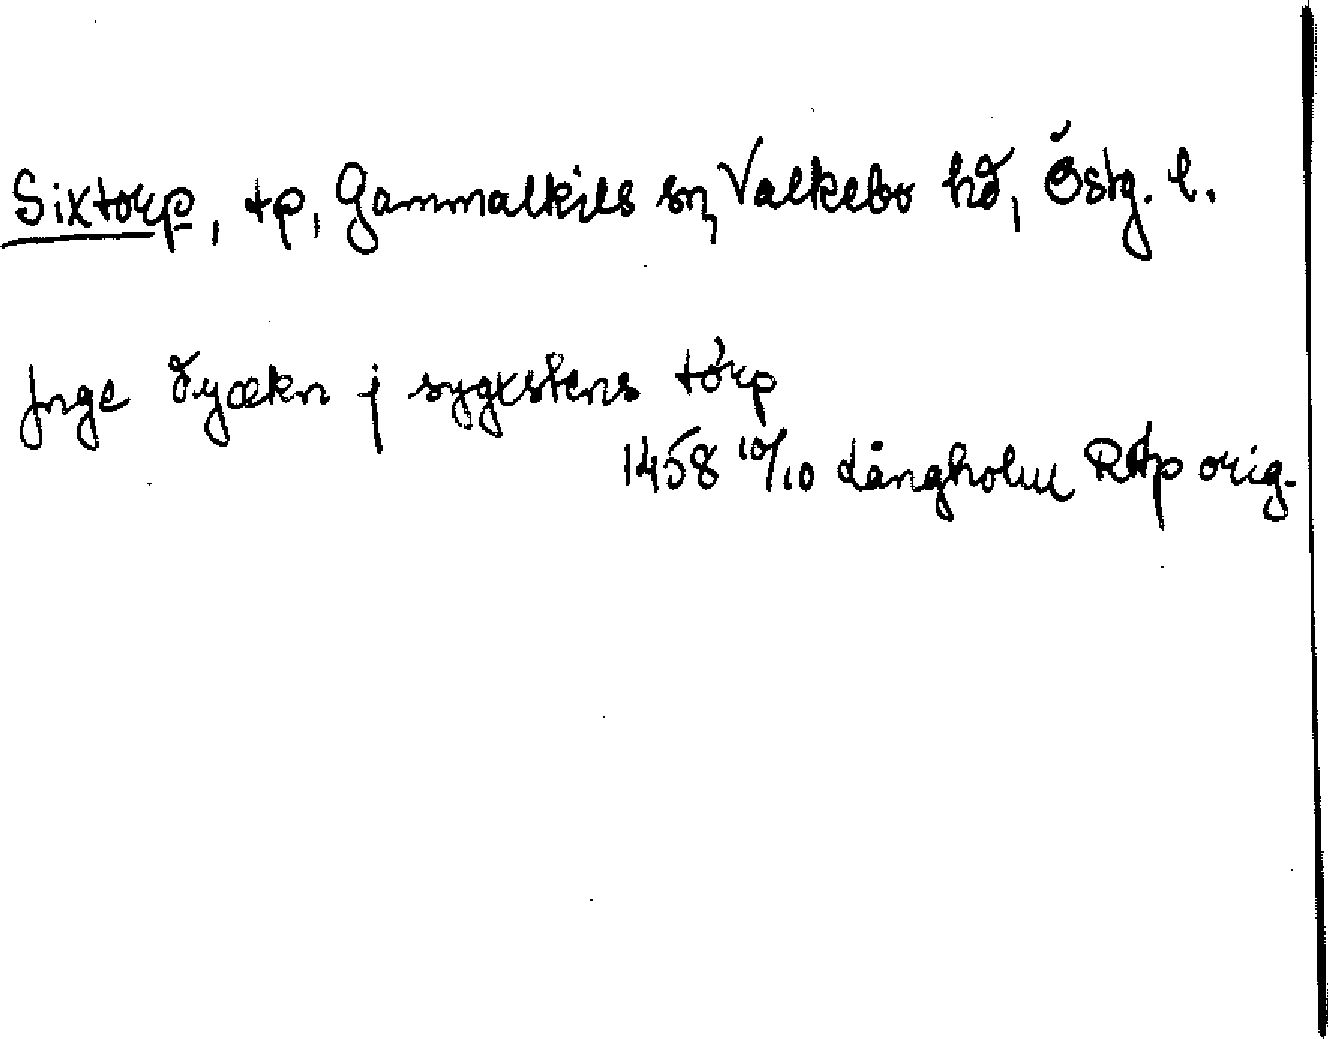 Sixtorp, tp, Gammalkils sn, Valkebo hd, Östg. l.
Jnge dyækn j sygxstens törp
1458 10/10 Långholm RAp orig.